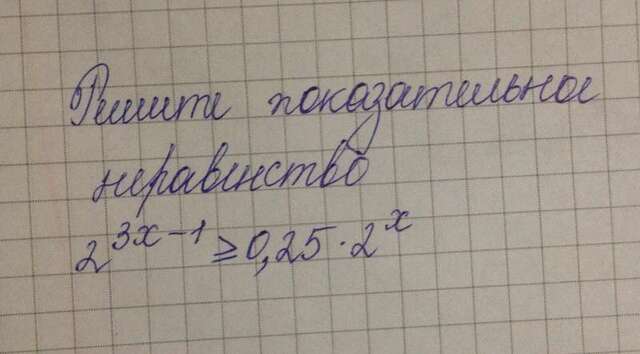 Решите показательное
неравенство
2^{3x-1} ≥ 0,25 · 2^x